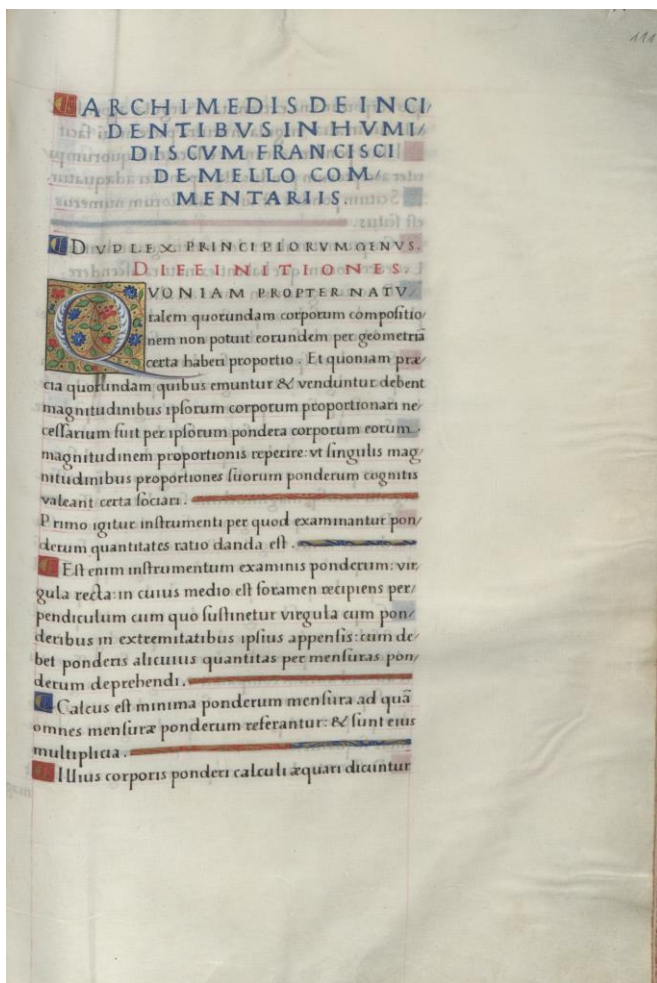 111
ARCHIMEDIS DE INCI/
DENTIBVS IN HVMI/
DIS CVM FRANCISCI
DE MELLO COM/
MENTARIIS.
DVPLEX PRINCIPIORVM GENVS.
DIFFINITIONES.
QVONIAM PROPTER NATV/
ralem quorundam corporum compositio/
nem non potuit eorundem per geometriā
certa haberi proportio. Et quoniam præ/
cia quorundam quibus emuntur & venduntur debent
magnitudinibus ipsorum corporum proportionari ne/
cessarium fuit per ipsorum pondera corporum eorum
magnitudinem proportionis reperire: vt singulis mag/
nitudinibus proportiones suorum ponderum cognitis
valeant certa sociari.
Primo igitur instrumenti per quod examinantur pon/
derum quantitates ratio danda est.
Est enim instrumentum examinis ponderum: vir/
gula recta: in cuius medio est foramen recipiens per/
pendiculum cum quo sustinetur virgula cum pon/
deribus in extremitatibus ipsius appensis: cum de/
bet ponderis alicuius quantitas per mensuras pon/
derum deprehendi.
Calcus est minima ponderum mensura ad quā
omnes mensuræ ponderum referantur: & sunt eius
multiplicia.
Illius corporis ponderi calculi æquari dicuntur